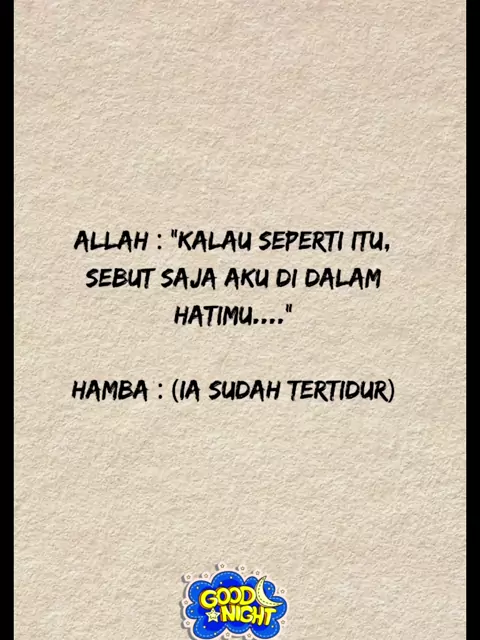 ALLAH : "KALAU SEPERTI ITU,
SEBUT SAJA AKU DI DALAM
HATIMU...."
HAMBA : (IA SUDAH TERTIDUR)
GOOD
NIGHT